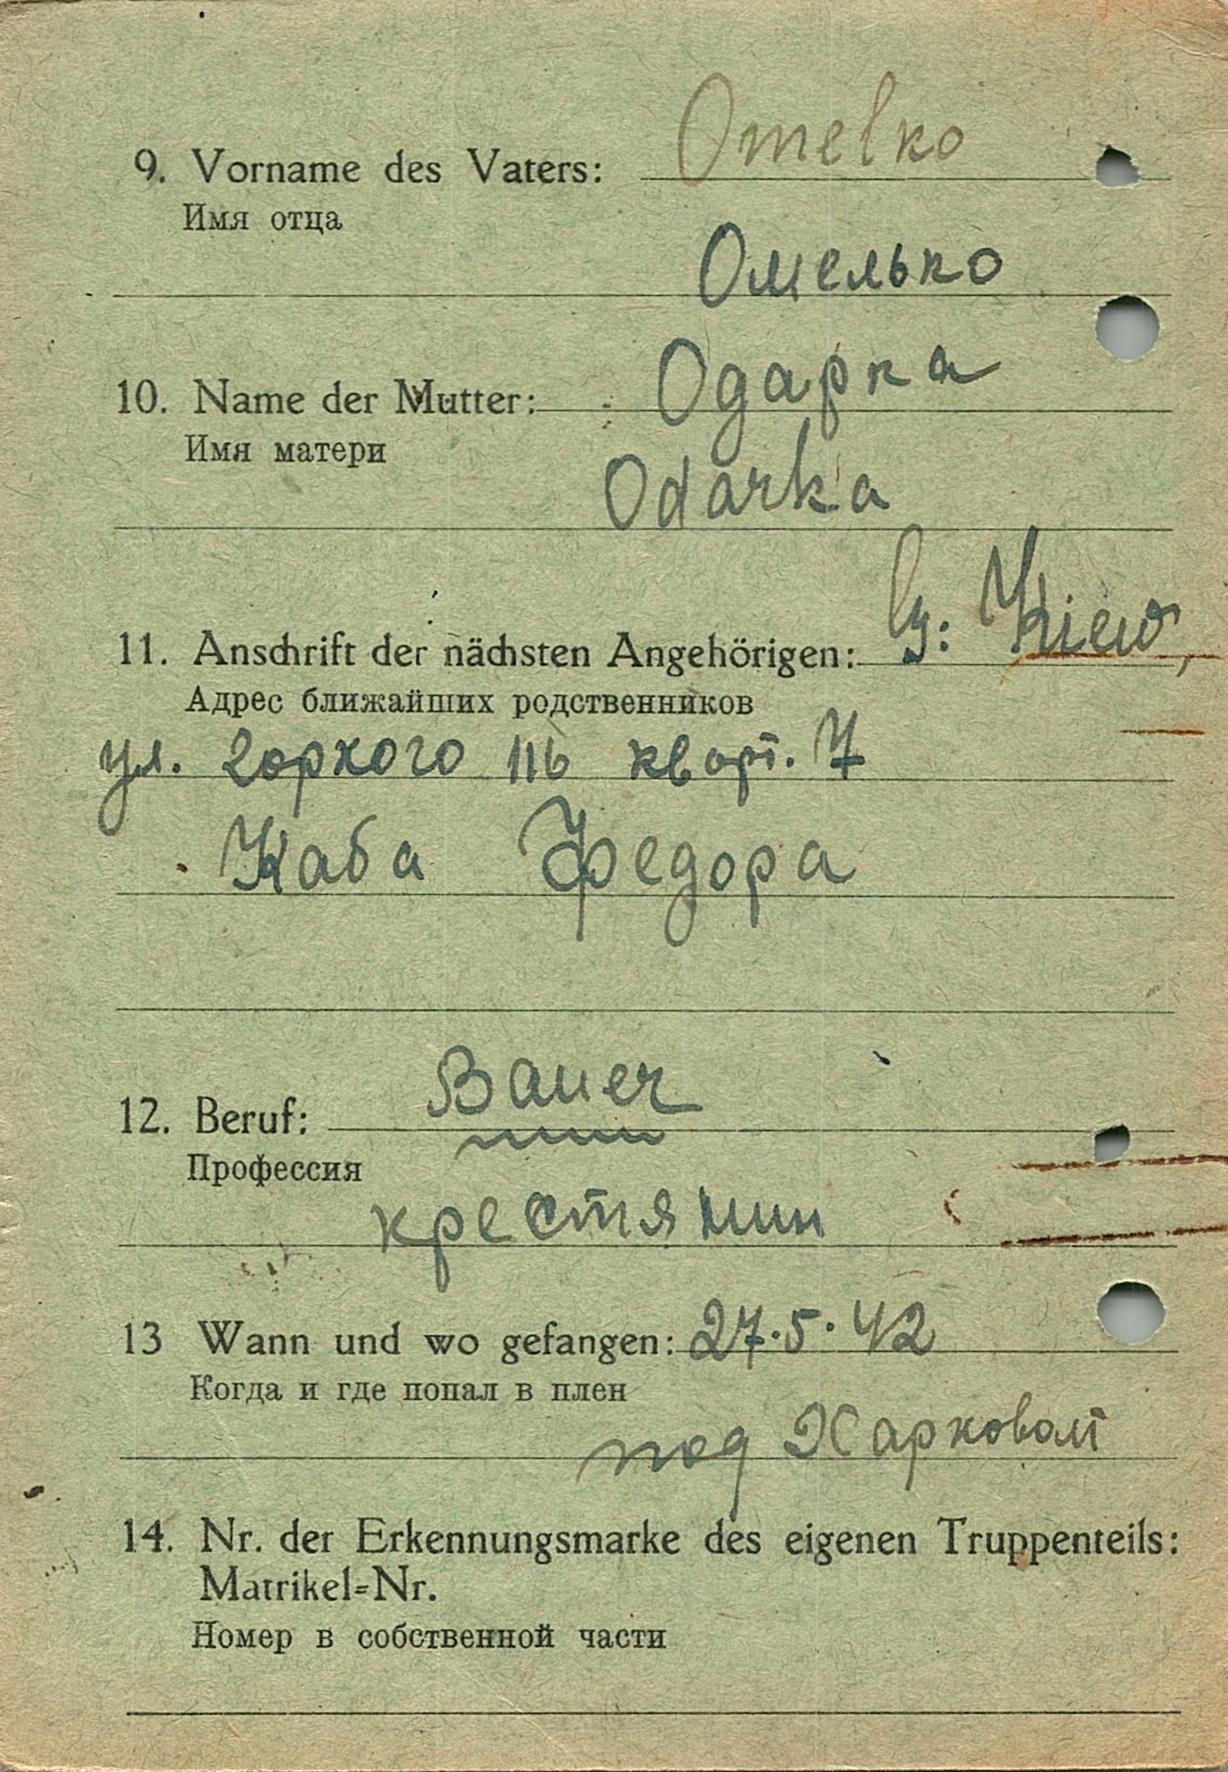 Omelko
9. Vorname des Vaters:
Имя отца
Омелько
10. Name der Mutter: Одарка
Имя матери
Odarka
11. Anschrift der nächsten Angehörigen: Kiew,
Адрес ближайших родственников
ул. Горкого 116 кварт. 7
Каба Федора
12. Beruf: Bauer
Профессия
крестянин
13 Wann und wo gefangen: 27.5.42
Когда и где попал в плен
под Харковом
14. Nr. der Erkennungsmarke des eigenen Truppenteils:
Matrikel-Nr.
Номер в собственной части